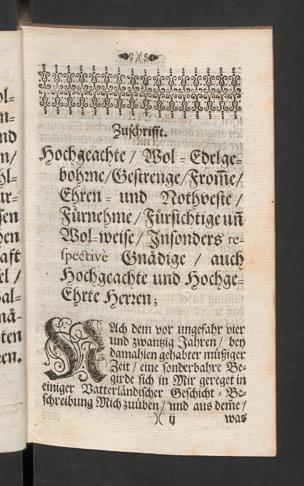 )(
Zuschrifft.
Hochgeachte / Wol-Edelge-
bohrne / Gestrenge / From̃e /
Ehren- und Nothveste /
Fürnehme / Fürsichtige uñ
Wol-weise / Insonders re-
spective Gnädige / auch
Hochgeachte und Hochge-
Ehrte Herren;
NAch dem vor ungefahr vier
und zwantzig Jahren / bey
damahlen gehabter müßiger
Zeit / eine sonderbahre Be-
girde sich in Mir gereget in
einiger Vatterländischer Geschicht-Be-
schreibung Mich zuüben / und aus dem̃e /
)( ij was